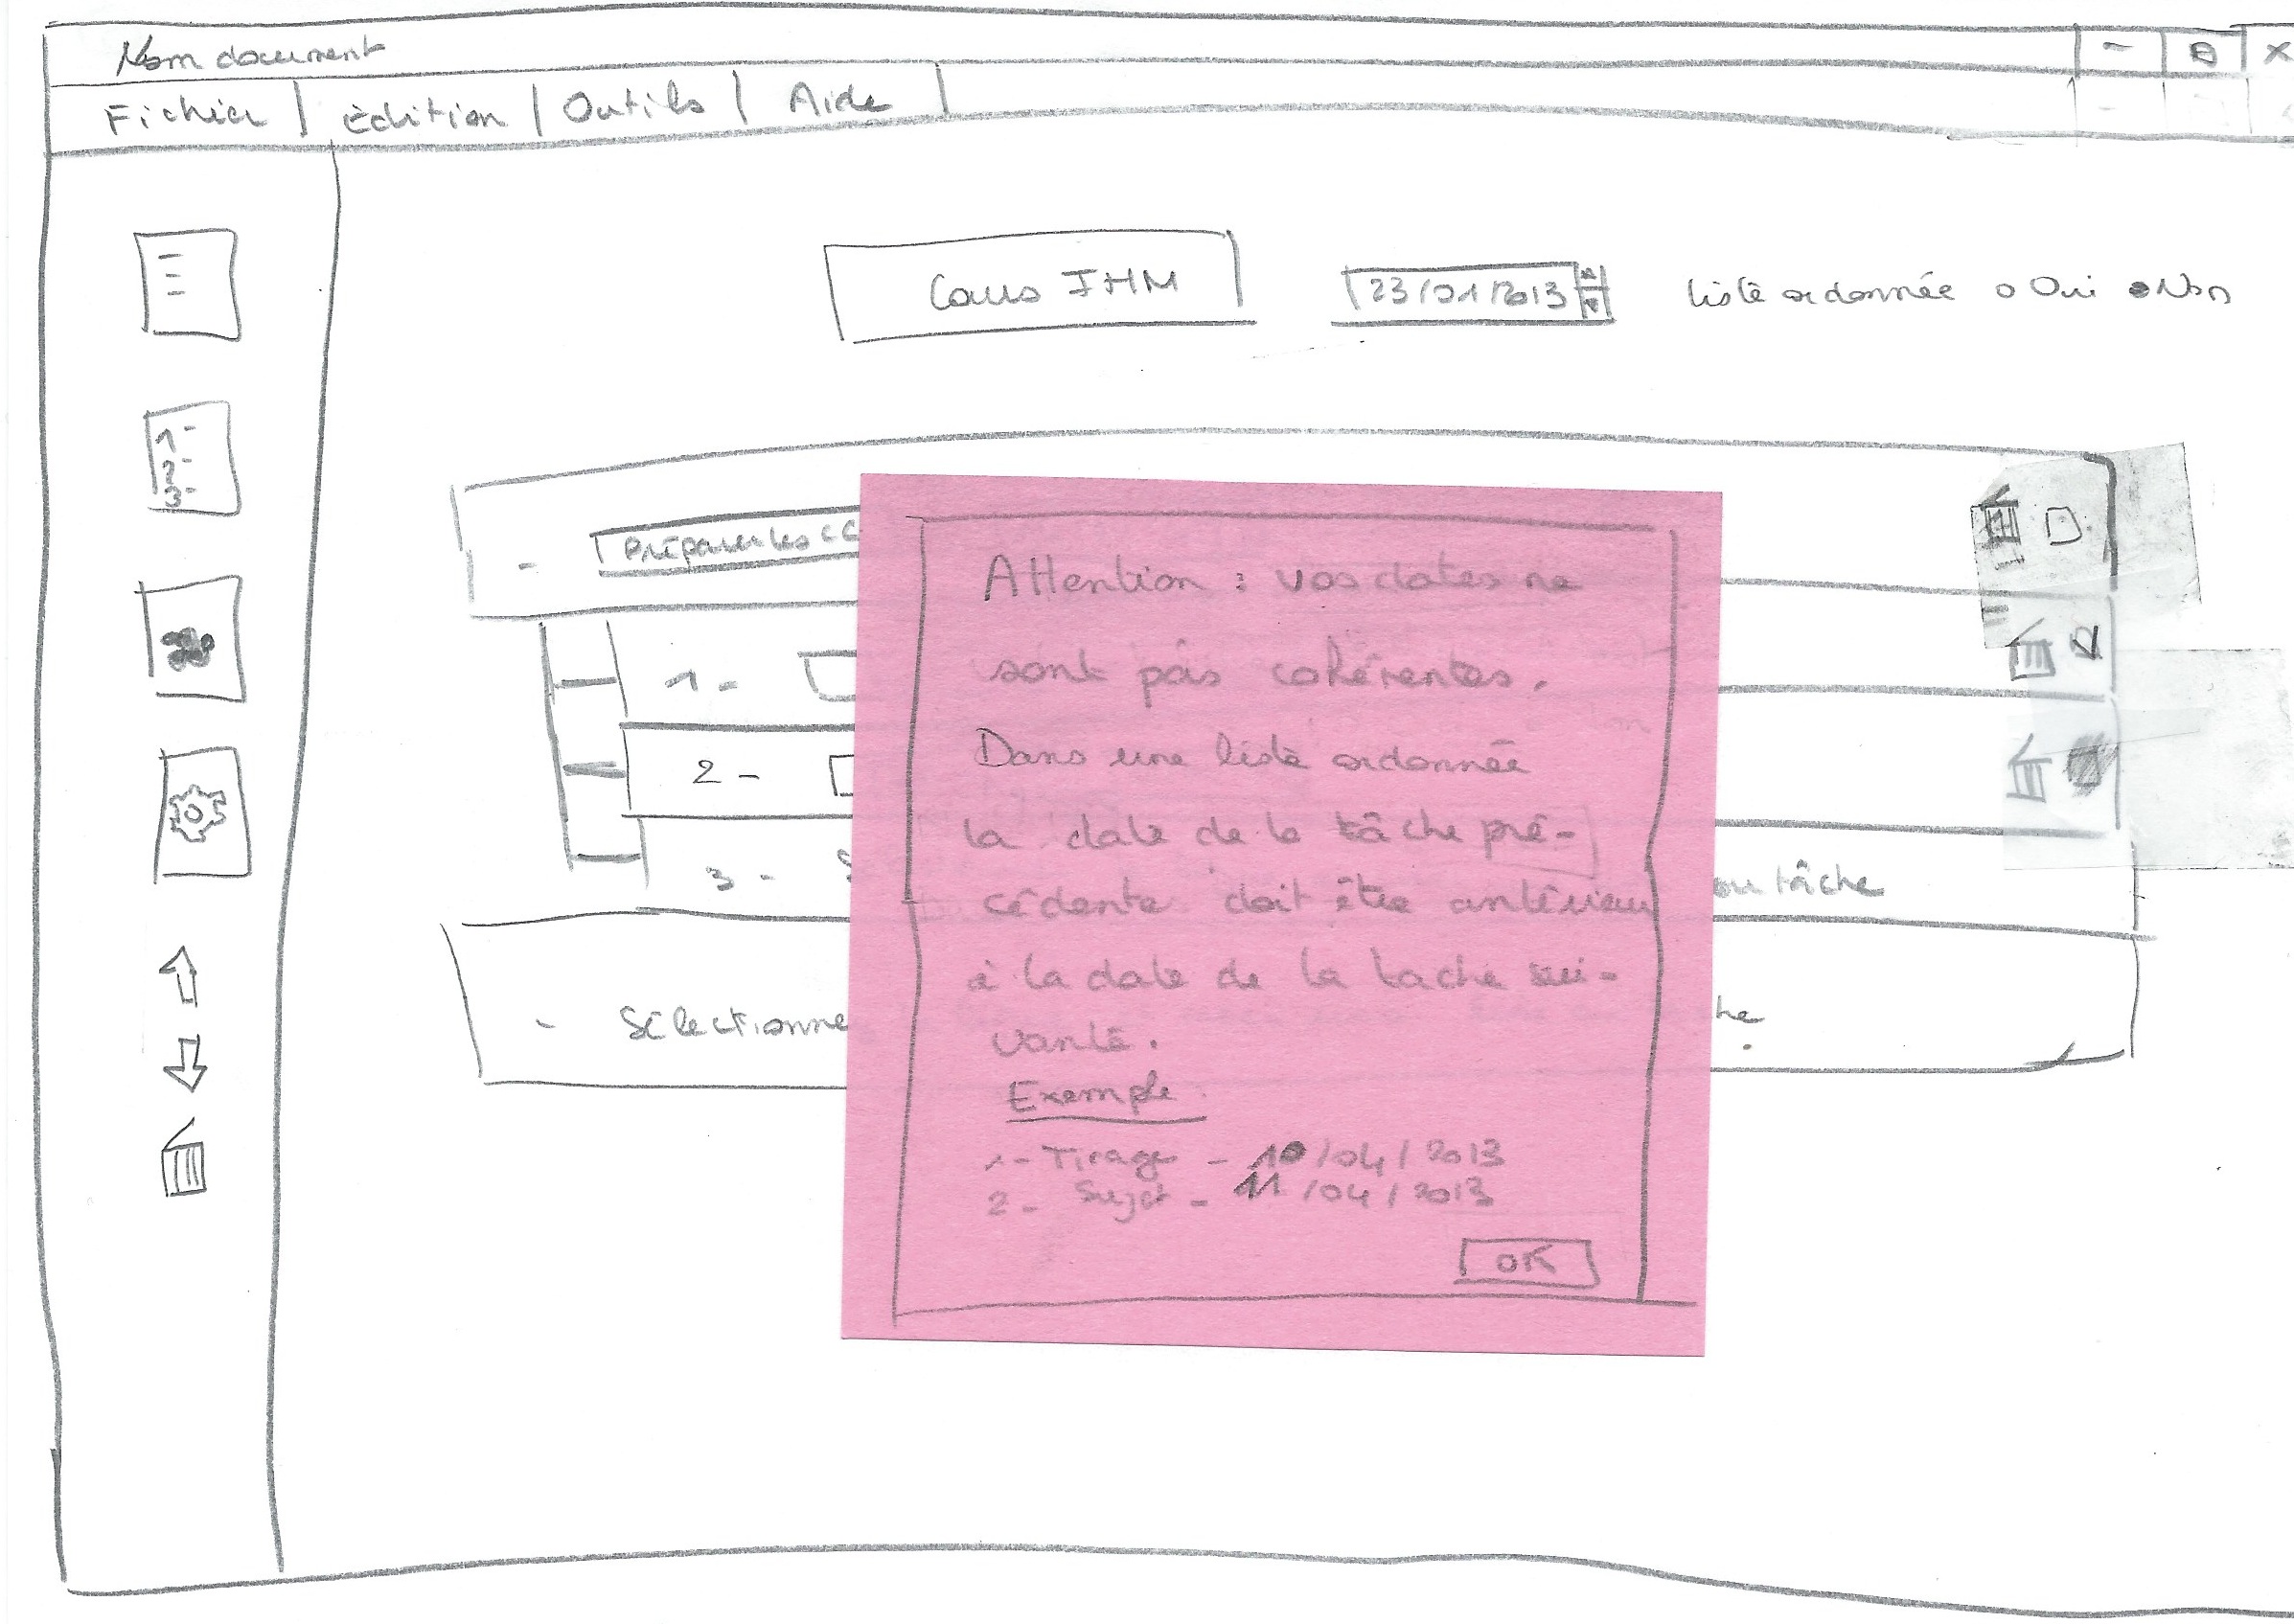 Nom document
Fichier | Édition | Outils | Aide
Cours IHM
23/01/2013
liste ordonnée o Oui ● Non
1-
2-
3-
- Préparer les CC
1 -
2 -
3 -
ou tâche
- Sélectionne
he
Attention : vos dates ne
sont pas cohérentes.
Dans une liste ordonnée
la date de la tâche pré-
cédente doit être antérieur
à la date de la tache sui-
vante.
Exemple
1- Tirage - 10/04/2013
2 - Sujet - 11/04/2013
OK